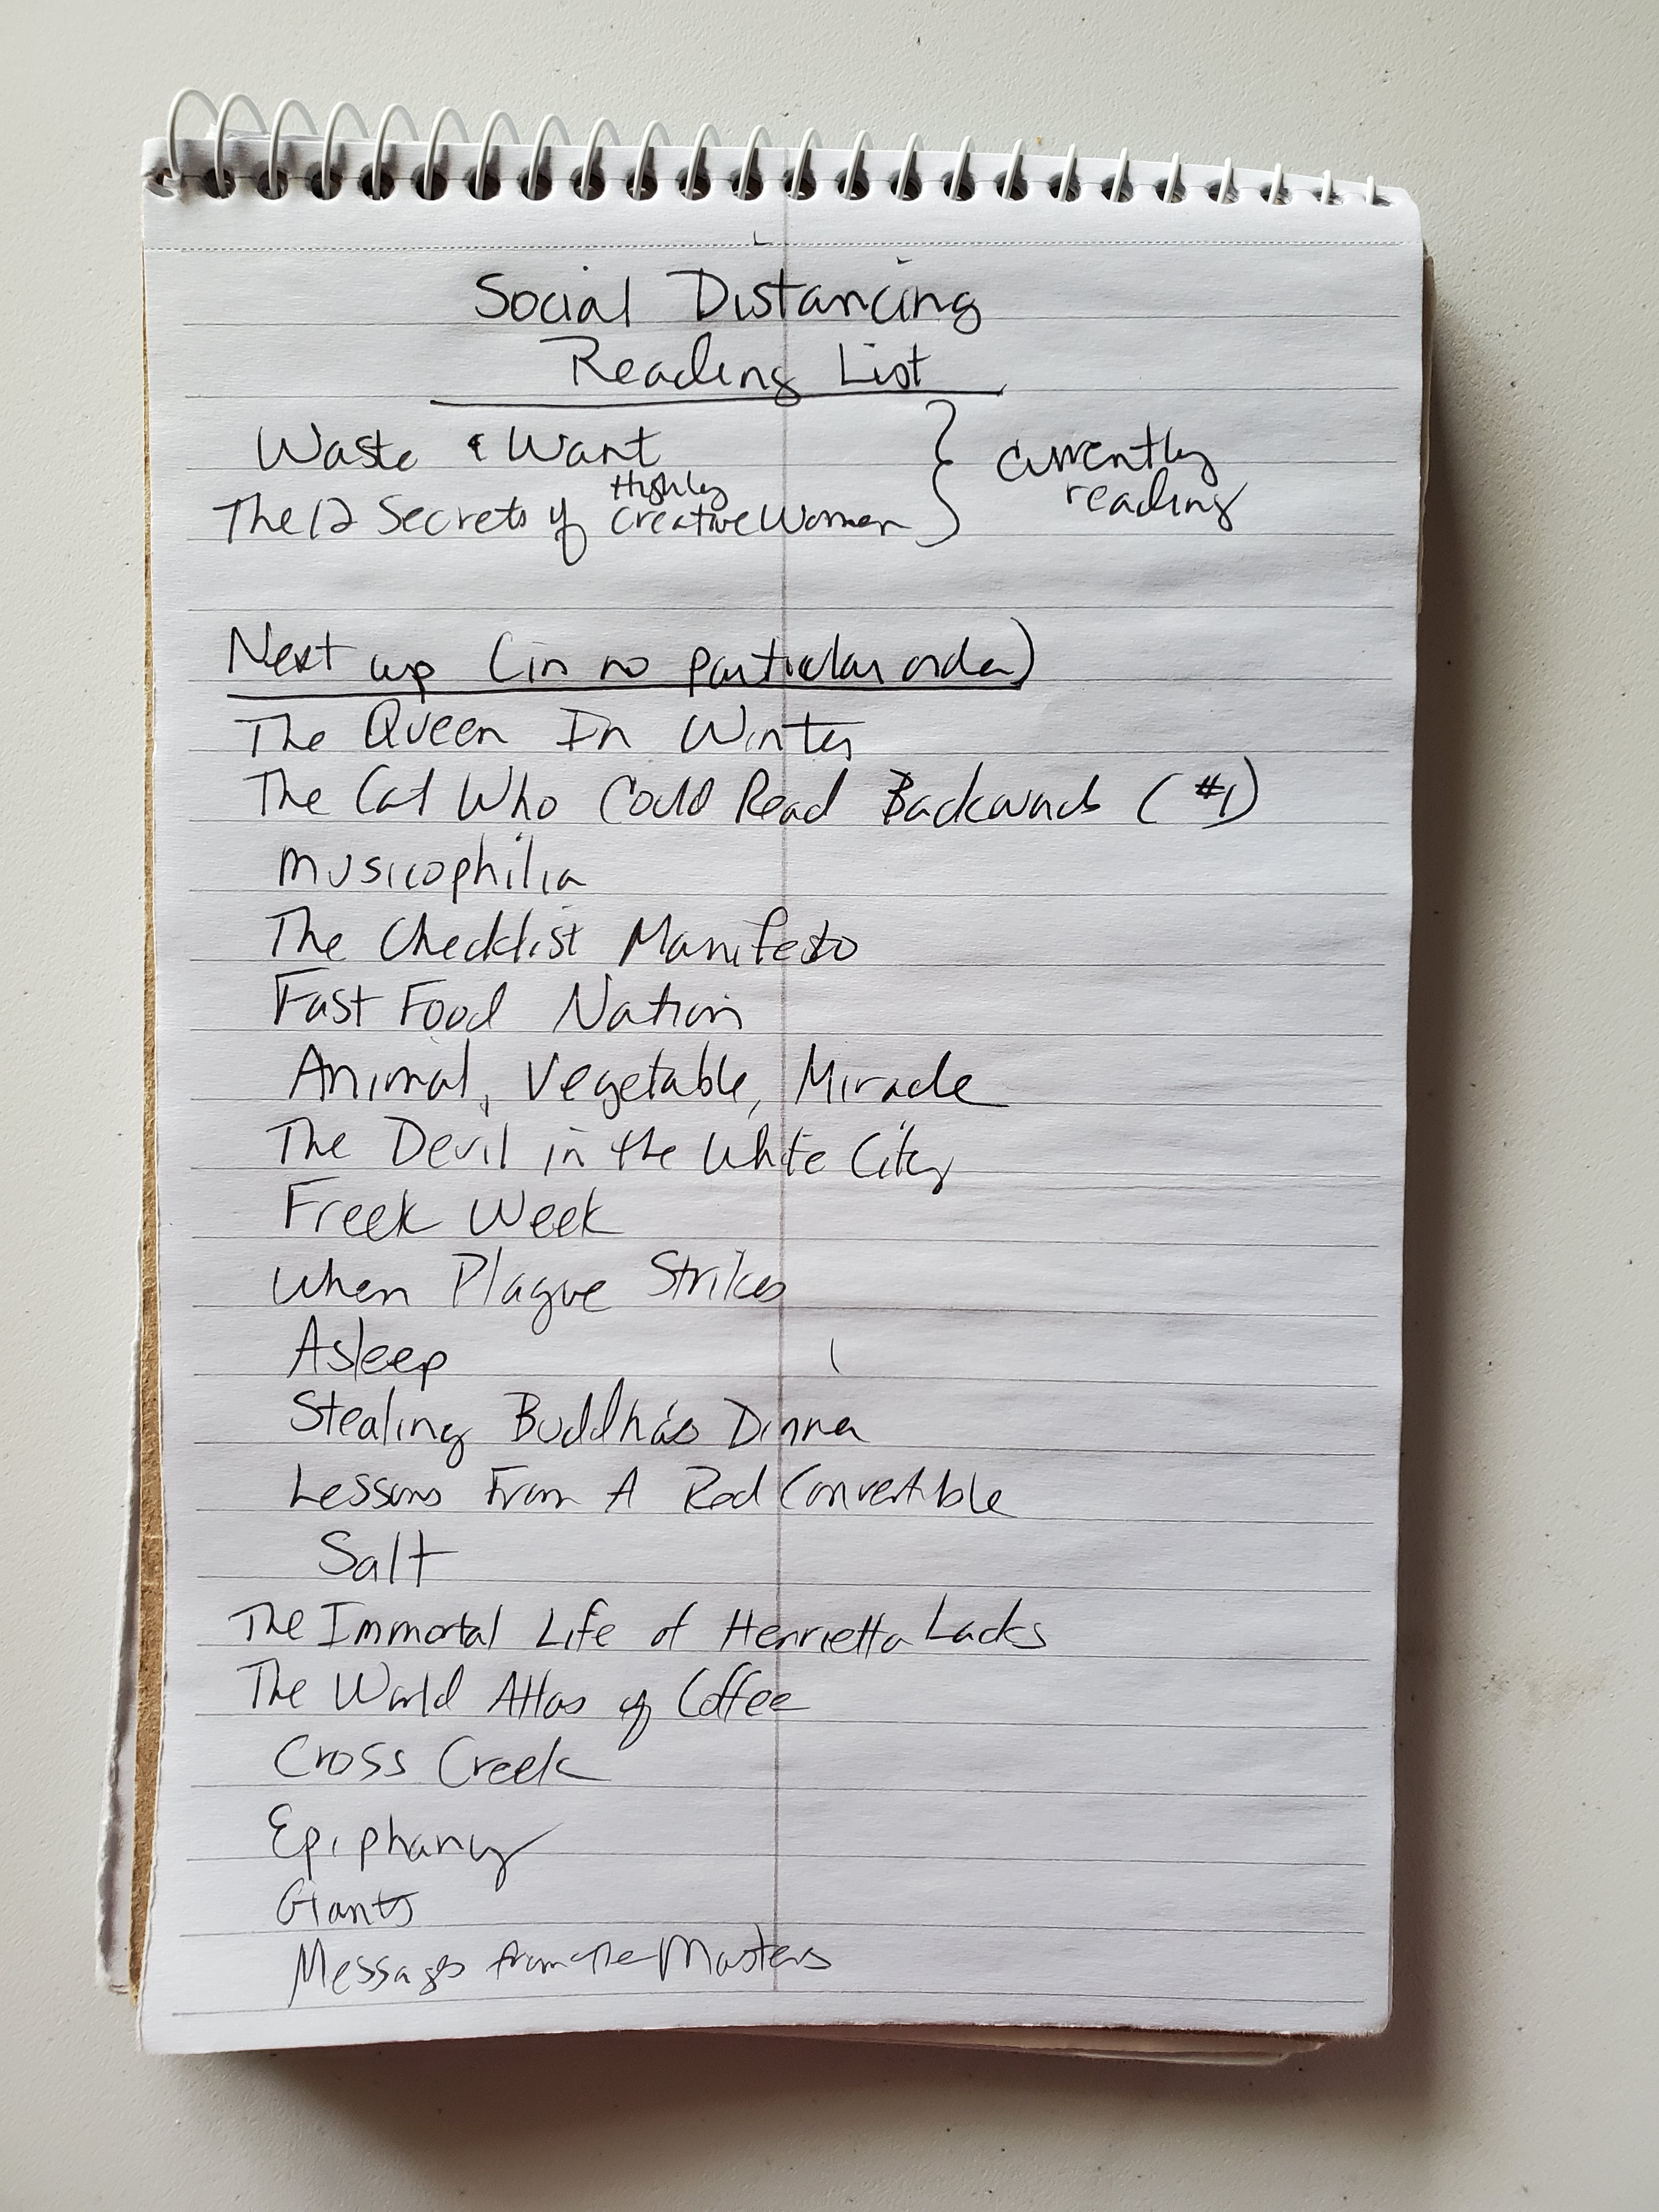 Social Distancing
Reading List
Waste & Want
The 12 Secrets of Highly Creative Women
currently
reading
Next up (in no particular order)
The Queen In Winter
The Cat Who Could Read Backwards (#1)
Musicophilia
The Checklist Manifesto
Fast Food Nation
Animal, Vegetable, Miracle
The Devil in the White City
Freek Week
When Plague Strikes
Asleep
Stealing Buddha's Dinner
Lessons From A Red Convertible
Salt
The Immortal Life of Henrietta Lacks
The World Atlas of Coffee
Cross Creek
Epiphany
Giants
Messages from the Masters